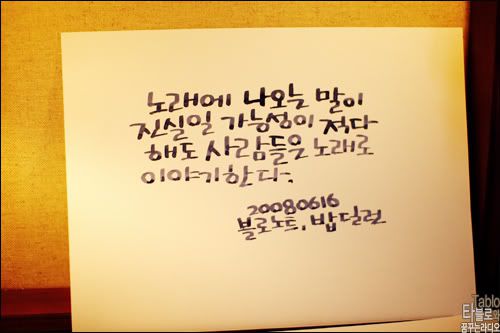 노래에 나오는 말이
진실일 가능성이 적다
해도 사람들은 노래로
이야기한다.
20080616
블로노트, 밥딜런
Tablo
타블로와
꿈꾸는라디오